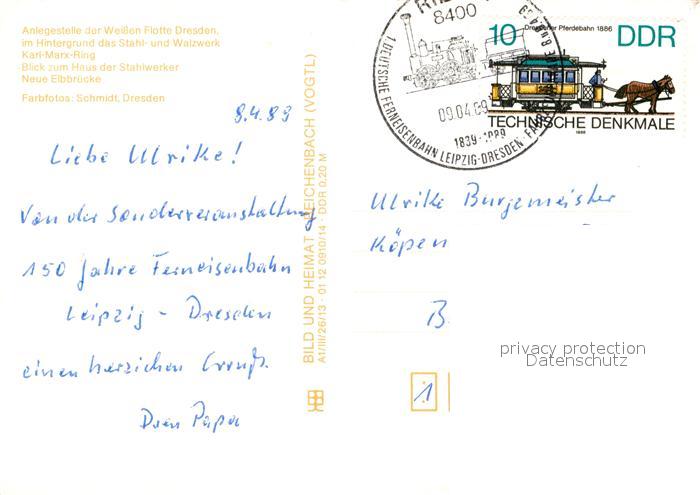 Anlegestelle der Weißen Flotte Dresden,
im Hintergrund das Stahl- und Walzwerk
Karl-Marx-Ring
Blick zum Haus der Stahlwerker
Neue Elbbrücke
Farbfotos: Schmidt, Dresden
8.4.89
Liebe Ulrike!
Von der Sonderveranstaltung
150 Jahre Ferneisenbahn
Leipzig - Dresden
einen herzlichen Gruß.
Dein Papa
BILD UND HEIMAT REICHENBACH (VOGTL)
A1/III/26/13 · 01 12 0910/14 · DDR 0,20 M
8400
09.04.89
1839-1989
1. DEUTSCHE FERNEISENBAHN LEIPZIG-DRESDEN
10 Dresdner Pferdebahn 1886 DDR
TECHNISCHE DENKMALE
1986
Ulrike Burgemeister
B
1
privacy protection
Datenschutz